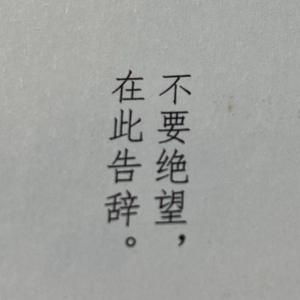 不要绝望，
在此告辞。